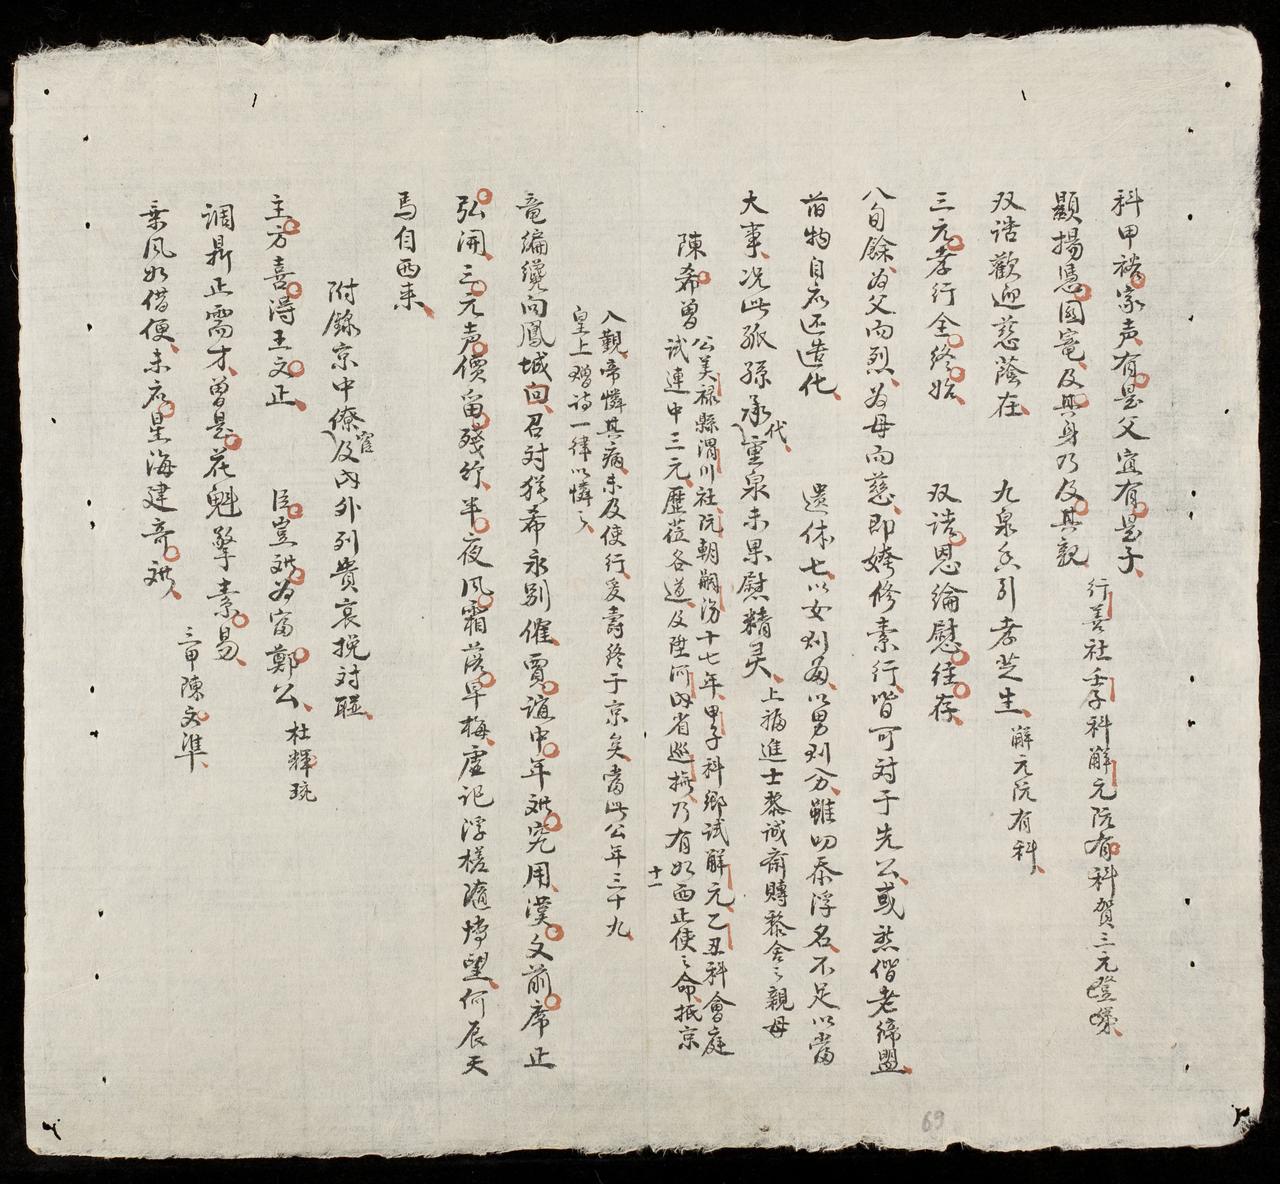 科甲裕家声有是父宜有是子 行善社壬子科解元阮有科賀三元登第
顯揚憑國寵及其身乃及其親
双誥歡迎慈蔭在 九泉含引孝芝生 解元阮有科
三元孝行全終始 双誥恩綸慰徃存
八旬餘為父而烈為母而慈即姱修素行皆可对于先公或愁偕老締盟
昔物自右还造化 遺体七以女列毎以男列分雖叨忝浮名不足以當
大事况此孤孫承代重泉未果慰精灵 上福進士黎诚齋賻黎舍之親母
陳希曽 公美禄縣渭川社阮朝嗣治十七年甲子科鄉試解元乙丑科會庭
試連中三元歷莅各道及陞河内省巡撫乃有如西正使之命抵京
入覲帝憐其病未及使行爰壽终于京矣當此公年三十九
皇上贈诗一律以憐之
竜編纔向鳳城回召对猶希永别催賈誼中年难究用漢文前席正
弘開三元声價留殘竹半夜風霜落早梅虚记浮槎隨博望何辰天
馬自西来
附錄京中僚官及内外列貴哀挽对聯
主方喜得王文正 臣豈难为富鄭公 杜輝琬
调鼎正需才曽是花魁擎素易
乘风如借便未应星海建奇难 三甲陳文準
十一
69